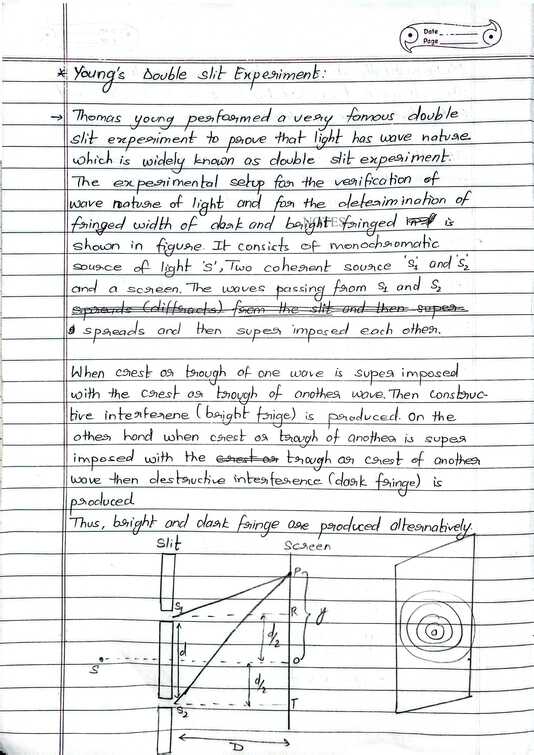 Date
Page
* Young's Double slit Experiment:
→ Thomas young performed a very famous double
slit experiment to prove that light has wave nature
which is widely known as double slit experiment.
The experimental setup for the verification of
wave nature of light and for the deterimination of
fringed width of dark and bright fringed is
NOTES
shown in figure. It consicts of monochromatic
source of light 'S', Two coherent source 'S1' and 'S2'
and a screen. The waves passing from S1 and S2
spreads (diffracts) from the slit and then super
spreads and then super imposed each other.
When crest or trough of one wave is super imposed
with the crest or trough of another wave. Then construc-
tive interferene (bright frige) is produced. On the
other hond when crest or trough of another is super
imposed with the crest or trough or crest of another
wave then destructive interference (dark fringe) is
produced
Thus, bright and dark fringe are produced alternatively.
Slit Screen
P
S1 R y
d/2
d
S O a
d/2
S2 T
D